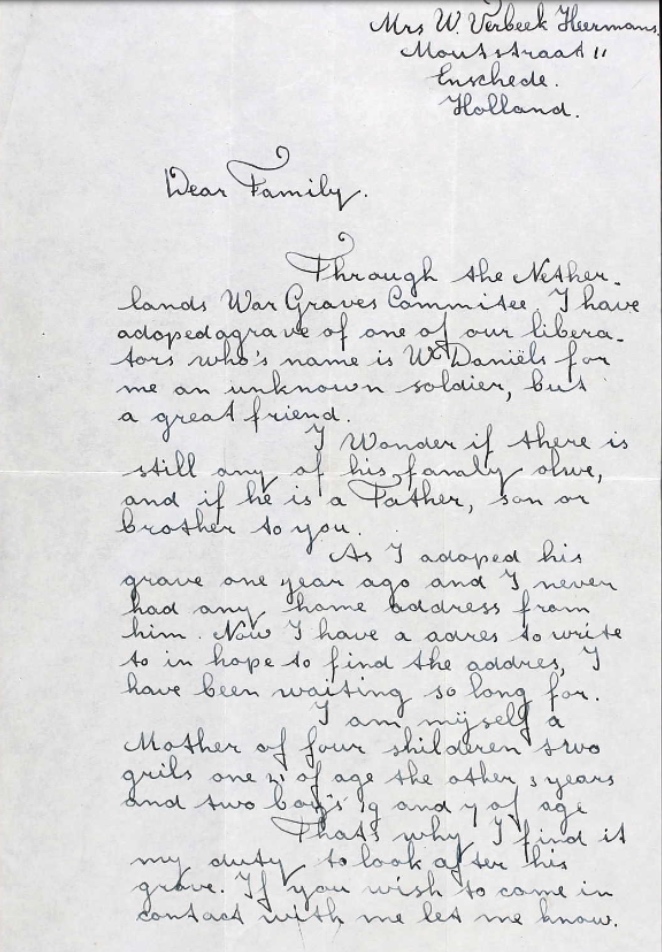 Mrs W. Verbeek Heermans.
Moutstraat 11
Enschede.
Holland.
Dear Family.
Through the Nether-
lands War Graves Commitee, I have
adopedagrave of one of our libera-
tors who's name is W Daniëls for
me an unknown soldier, but
a great friend.
I Wonder if there is
still any of his famly alive,
and if he is a Father, son or
brother to you.
As I adoped his
grave one year ago and I never
had any home address from
him. Now I have a adres to write
to in hope to find the addres, I
have been waiting so long for.
I am myself a
Mother of four shilderen two
grils one 21 of age the other 3 years
and two boy's 19 and 7 of age
Thats why I find it
my duty to look after his
grave. If you wish to come in
contact with me let me know.